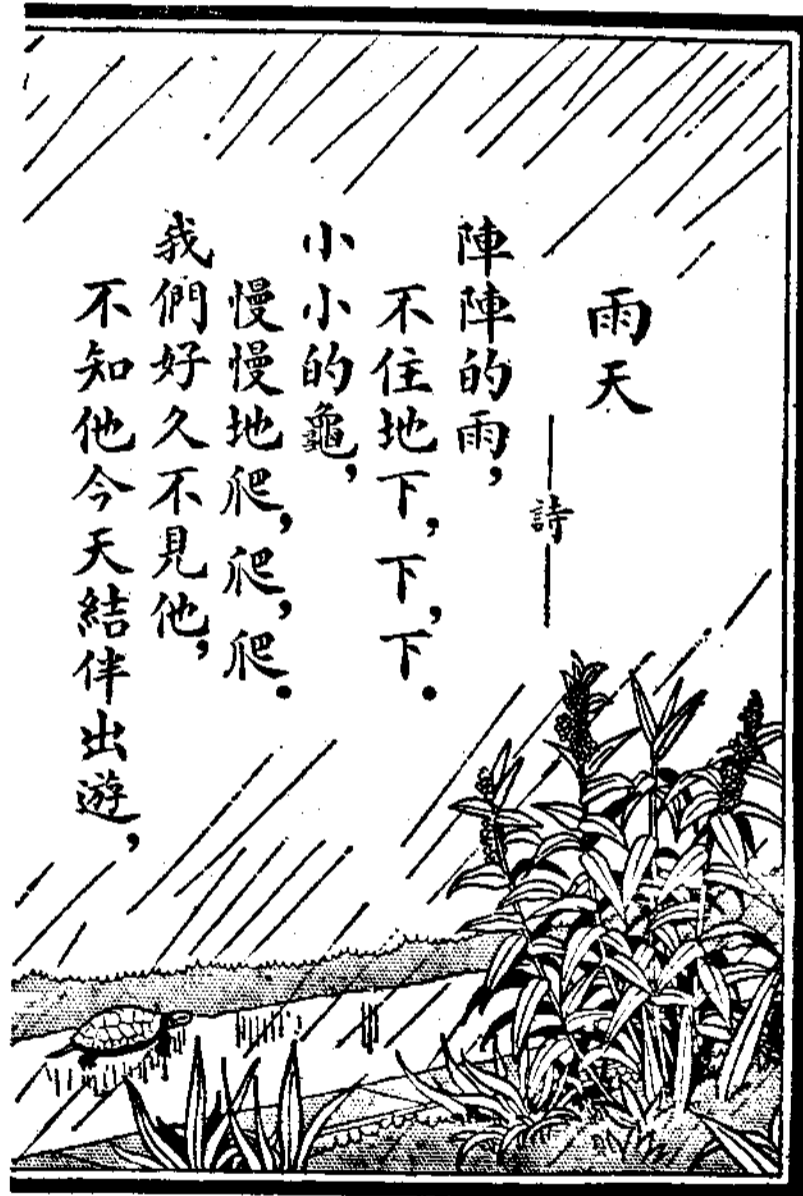 雨天
詩
陣陣的雨，
不住地下，下，下．
小小的龜，
慢慢地爬，爬，爬．
我們好久不見他，
不知他今天結伴出遊，